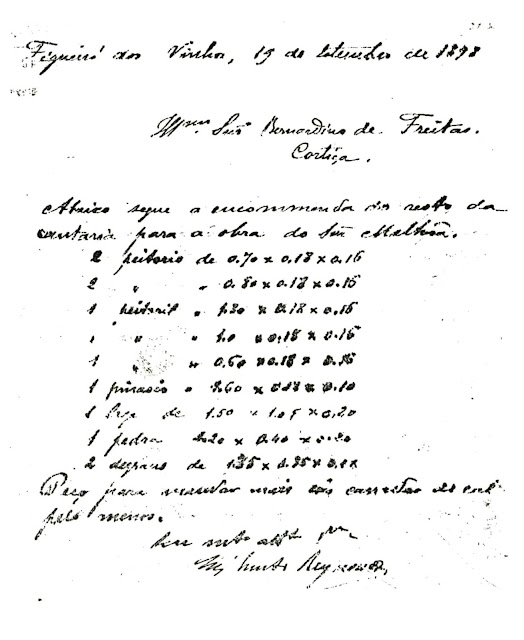 Figueiró dos Vinhos, 15 de Setembro de 1898
Illmo Snr Bernardino de Freitas.
Cortiça.
Abaixo segue a encommenda do resto da
cantaria para a obra do Snr Malhôa.
2 peitoris de 0.70 x 0.18 x 0.16
2 " " 0.80 x 0.18 x 0.16
1 peitoril " x 0.18 x 0.16
" " " x 0.18 x 0.16
1 " " 0.60 x 0.18 x 0.16
1 " x 0.10
1 de 1.50 x 1.05 x 0.20
1 pedra 2.20 x 0.40 x
2 degraus de 1.35 x
Peço para mandar mais carradas de cal
pelo menos.